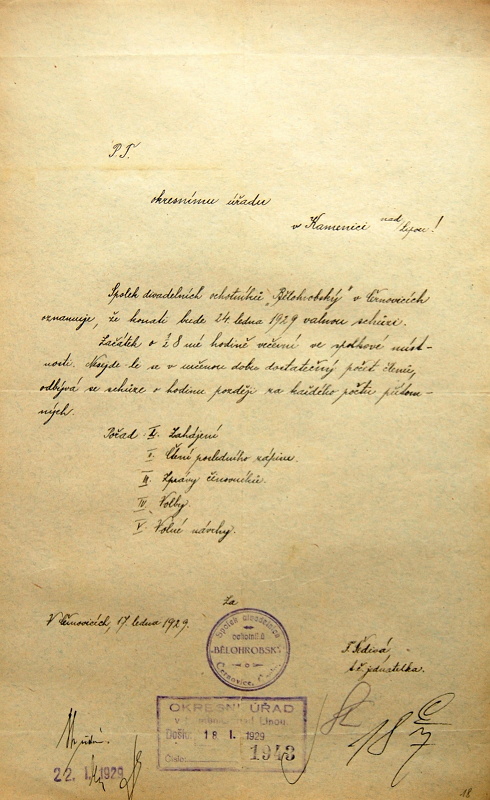 P. T.
okresnímu úřadu
v Kamenici nad Lipou!
Spolek divadelních ochotníků „Bělohrobský" v Černovicích
oznamuje, že konati bude 24. ledna 1929 valnou schůzi.
Začátek o ½ 8 mé hodině večerní ve spolkové míst-
nosti. Nesejde-li se v určenou dobu dostatečný počet členů,
odbývá se schůze o hodinu později za každého počtu přítom-
ných.
Pořad I. Zahájení
I. Čtení posledního zápisu.
III. Zprávy činovníků.
IV. Volby.
V. Volné návrhy.
V Černovicích, 17 ledna 1929.
Za
Spolek divadelních
ochotníků
„BĚLOHROBSKÝ"
Černovice,
F. Šedivá
t. č. jednatelka.
OKRESNÍ ÚŘAD
v Kamenici nad Lipou.
Došlo: 18 I. 1929
Číslo: 1943
22. I. 1929
18